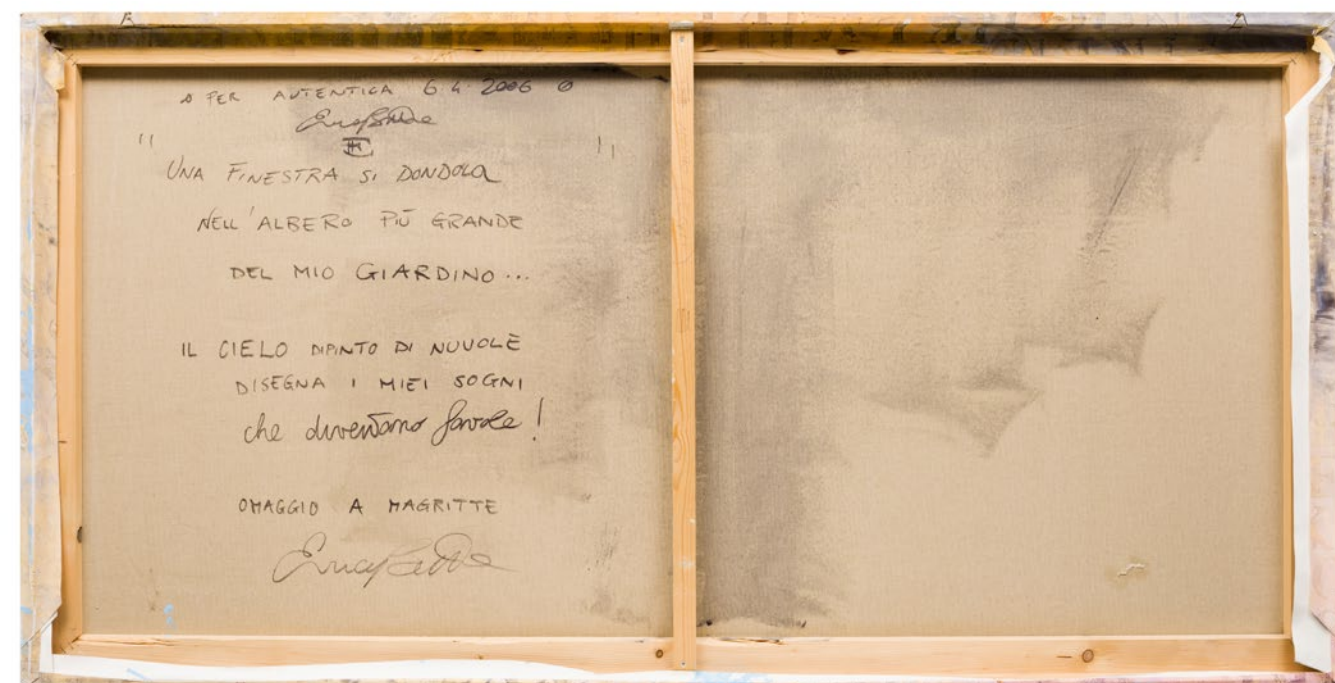 PER AUTENTICA 6.4.2006
"
"
UNA FINESTRA SI DONDOLA
NELL'ALBERO PIÙ GRANDE
DEL MIO GIARDINO...
IL CIELO DIPINTO DI NUVOLE
DISEGNA I MIEI SOGNI
che diventano favole!
OMAGGIO A MAGRITTE